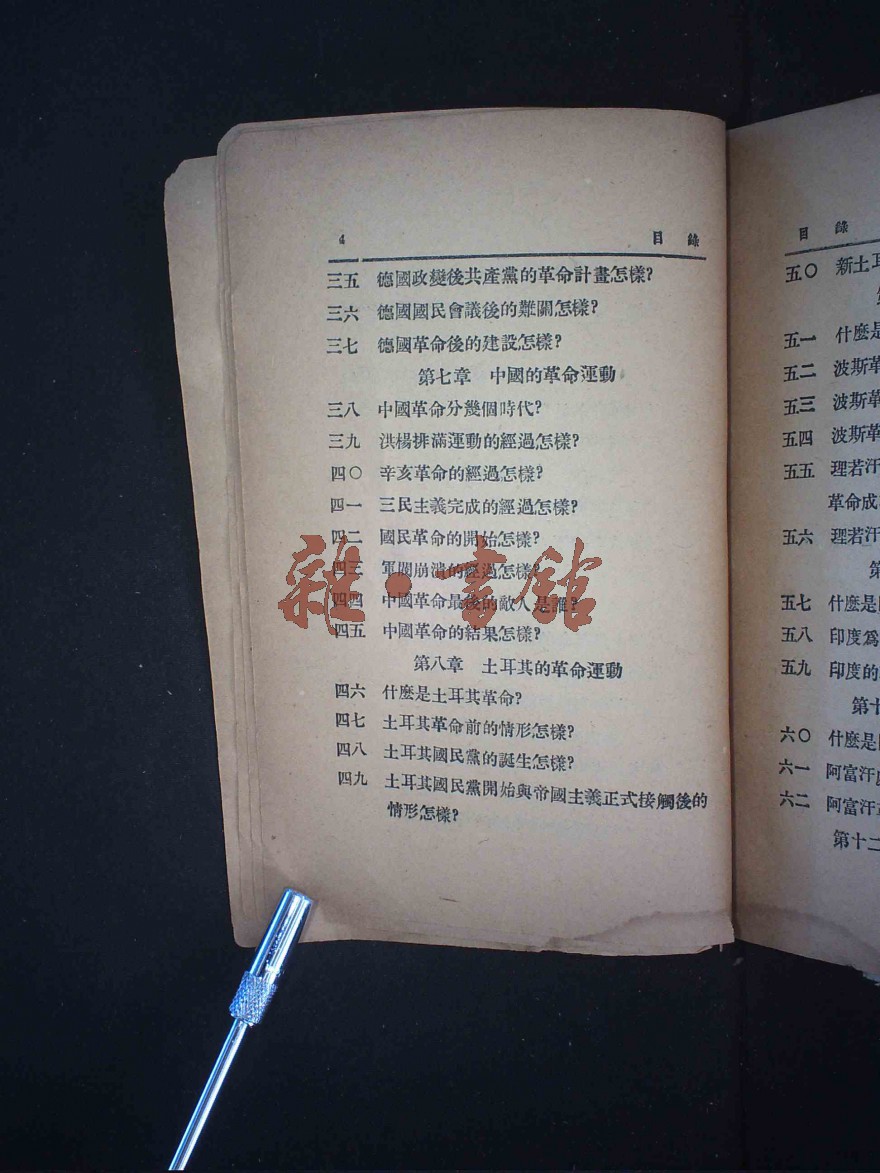 4 目錄
三五 德國政變後共產黨的革命計畫怎樣?
三六 德國國民會議後的難關怎樣?
三七 德國革命後的建設怎樣?
第七章 中國的革命運動
三八 中國革命分幾個時代?
三九 洪楊排滿運動的經過怎樣?
四〇 辛亥革命的經過怎樣?
四一 三民主義完成的經過怎樣?
四二 國民革命的開始怎樣?
四三 軍閥崩潰的經過怎樣?
四四 中國革命最後的敵人是誰?
四五 中國革命的結果怎樣?
第八章 土耳其的革命運動
四六 什麼是土耳其革命?
四七 土耳其革命前的情形怎樣?
四八 土耳其國民黨的誕生怎樣?
四九 土耳其國民黨開始與帝國主義正式接觸後的
情形怎樣?
雜·書館
目錄
五〇 新土耳
五一 什麼是
五二 波斯革
五三 波斯革
五四 波斯革
五五 理若汗
革命成
五六 理若汗
第
五七 什麼是
五八 印度爲
五九 印度的
第十
六〇 什麼是
六一 阿富汗
六二 阿富汗
第十二